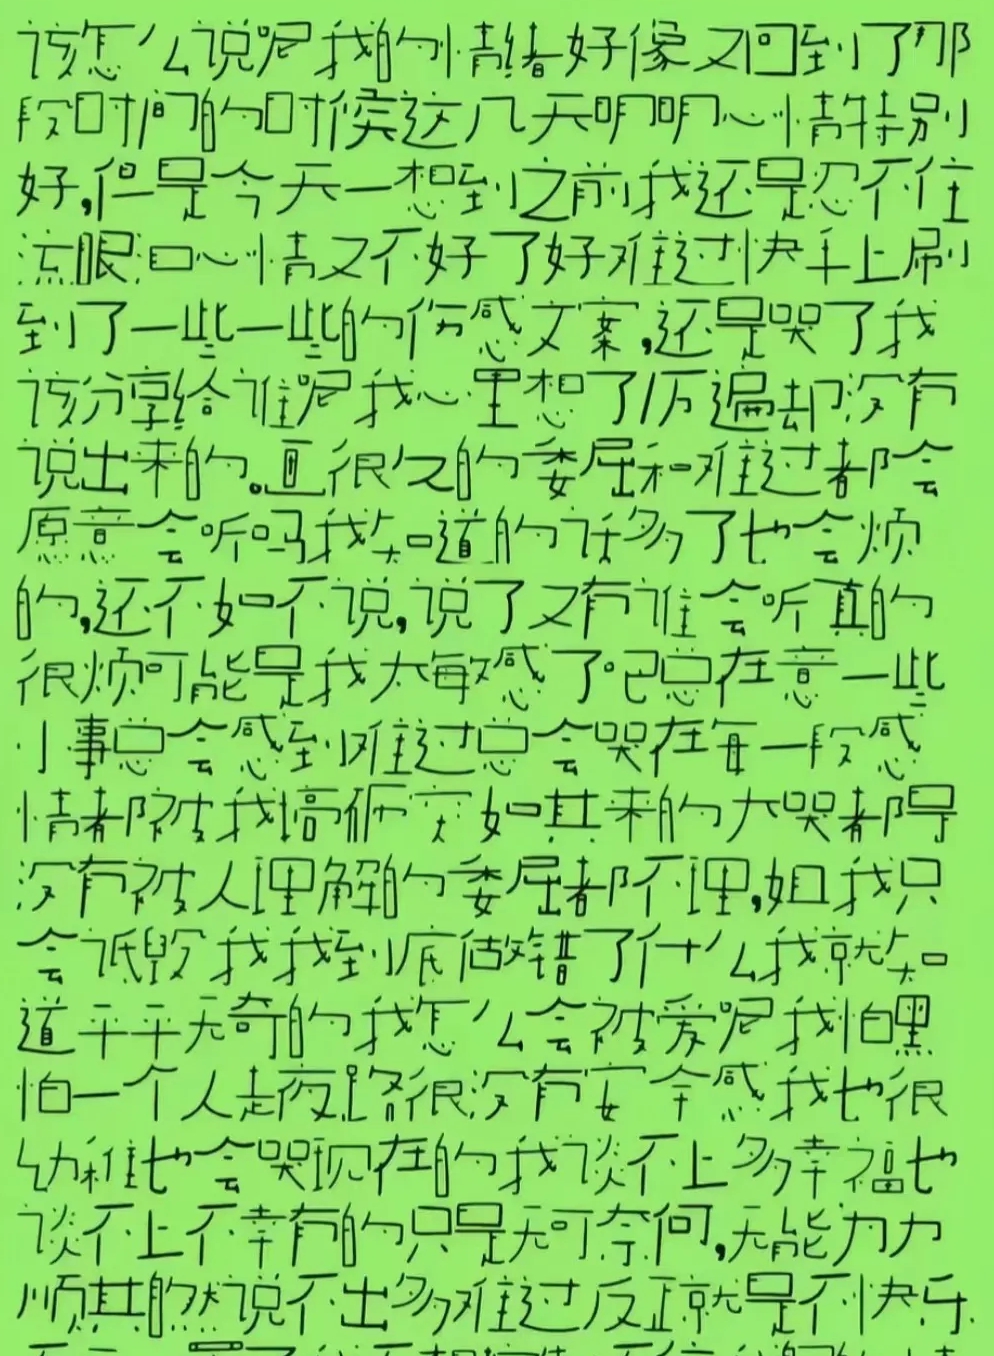 该怎么说呢我的情绪好像又回到了那
段时间的时候这几天明明心情特别
好,但是今天一想到之前我还是忍不住
流眼泪心情又不好了好难过快手上刷
到了一些一些的伤感文案,还是哭了我
该分享给谁呢我心里想了1万遍却没有
说出来的。画很久的委屈和难过都会
愿意会听吗我知道的话多了也会烦
的,还不如不说,说了又有谁会听真的
很烦可能是我太敏感了吧总在意一些
小事总会感到难过总会哭在每一段感
情都被我搞砸突如其来的大哭都得
没有被人理解的委屈都不理,姐我只
会诋毁我我到底做错了什么我就知
道平平无奇的我怎么会被爱呢我怕黑
怕一个人走夜路很没有安全感我也很
幼稚也会哭现在的我谈不上多幸福也
谈不上不幸有的只是无可奈何,无能力力
顺其自然说不出多难过反正就是不快乐.